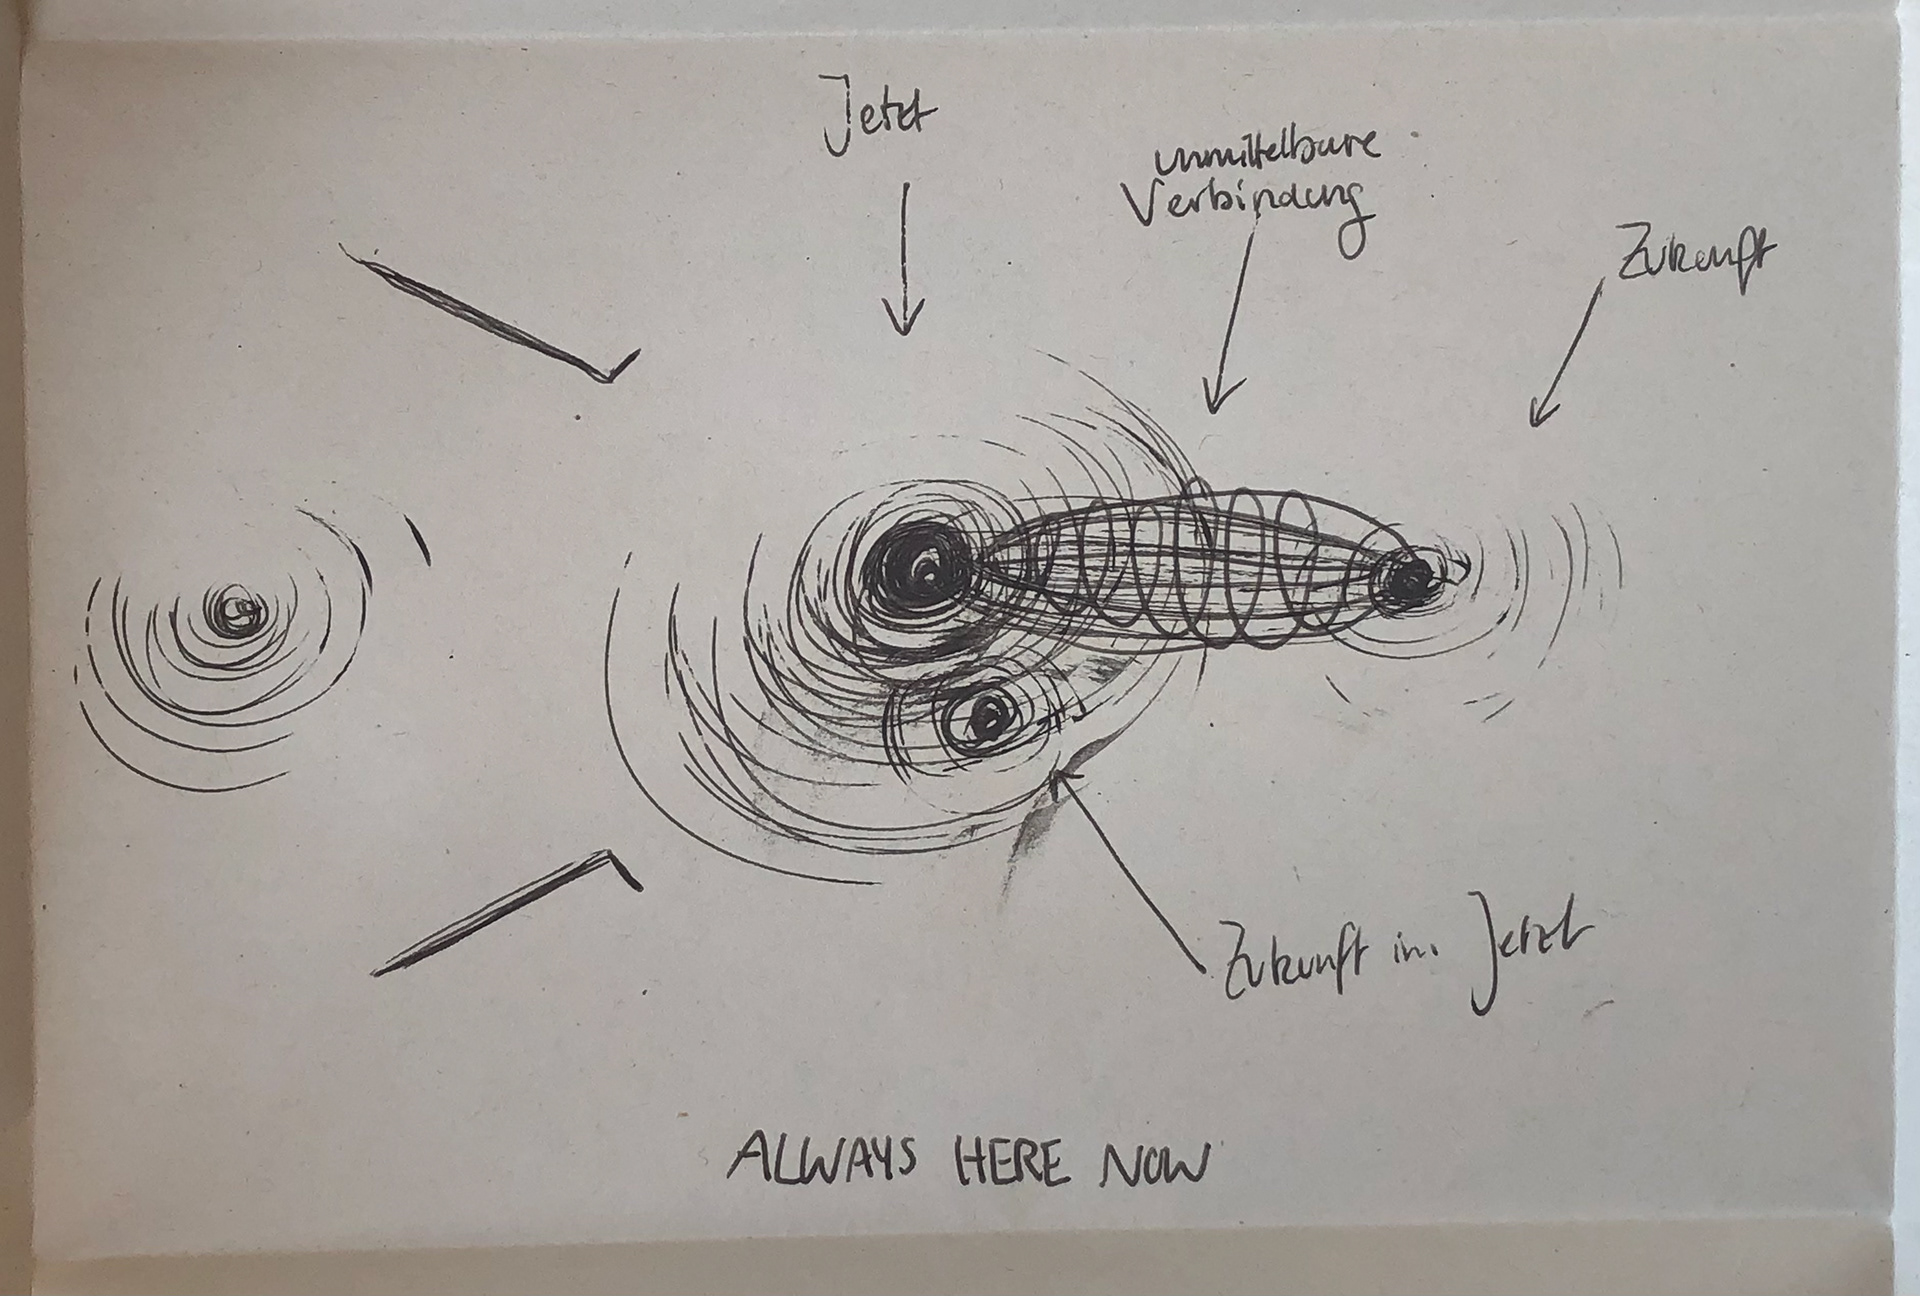 Jetzt
unmittelbare
Verbindung
Zukunft
Zukunft im Jetzt
ALWAYS HERE NOW